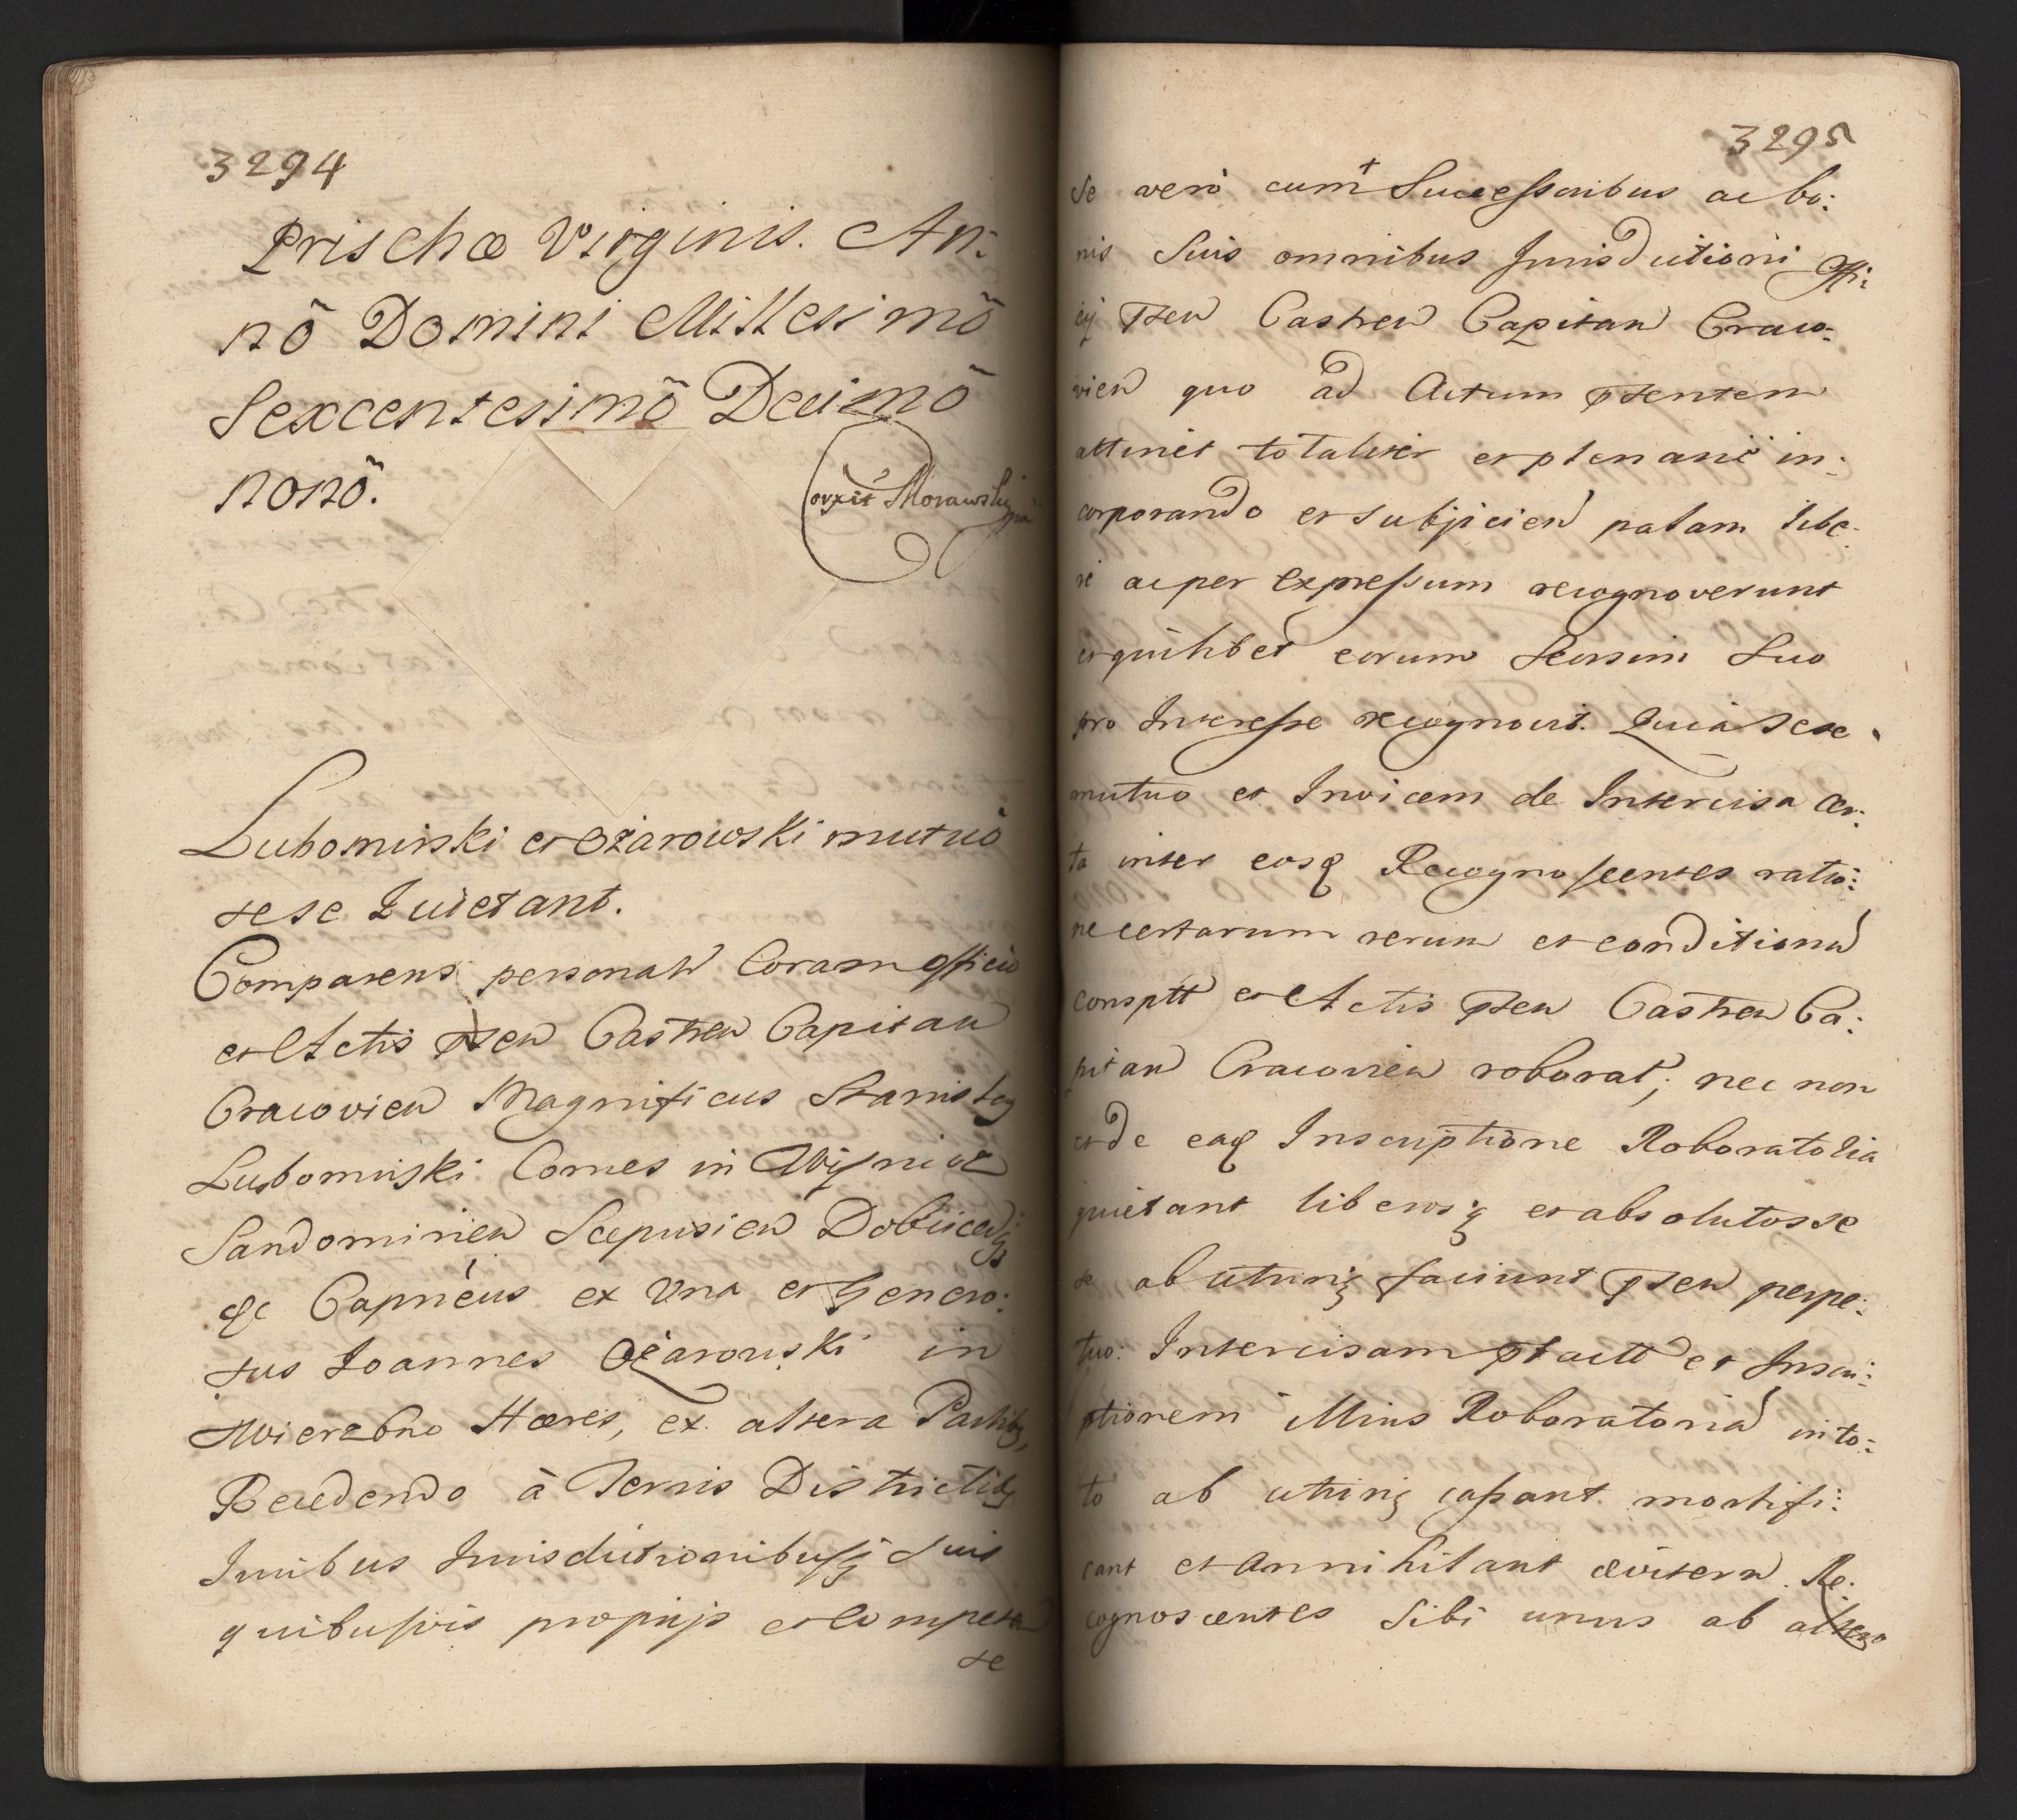 3294
Prischæ Virginis. An:
nō Domini Millesimō
Sexcentesimō Decimō
nonō.
Morawski
Lubomirski et Ożarowski mutuō
sese Quietant.
Comparens personalr Coram officio
et Actis pñen Castren Capitan
Cracovien Magnificus Stanislaꝯ
Lubomirski Comes in Wiſnicz
Sandomirien Scepusien Dobiceñ
qe Capnēus ex Una et Genero:
sus Ioannes Ożarowski in
Wierzbno Hæres, ex altera Partibꝫ,
Recedendo à Terris Districtibꝫ
Iuribus Iurisdictionibuſqꝫ Suis
quibuſvis propriis et Competen
se
3295
Se verò cum + Succeſsoribus ac bo:
nis Suis omnibus Jurisdictioni Offi:
cij pñen Castren Capitan Craco:
vien quo ad Actum pñsentem
attinet totaliter et plenariè in:
corporando et subijcien palam libe:
rè ac per expreſsum recognoverunt
et quilibet eorum seorsim Suo
pro Intereſse recognovit. Quia sese
mutuo et Invicem de Intercisa cer:
ta inter eosq Recognoſcentes ratio:
ne certarum rerum et conditionū
consptt et Actis pñen Castren Ca:
pitan Cracovien roborat; nec non
et de eaq Inscriptione Roboratoria
quietant liberosqꝫ et absolutos se
se ab utrinqꝫ faciunt pñen perpe:
tuo: Intercisam ptactt et Inscri:
ptionem illius Roboratoriā in to:
to ab utrinqꝫ caſsant mortifi:
cant et annihilant æviterñ. Re:
cognoscentes Sibi unus ab altero